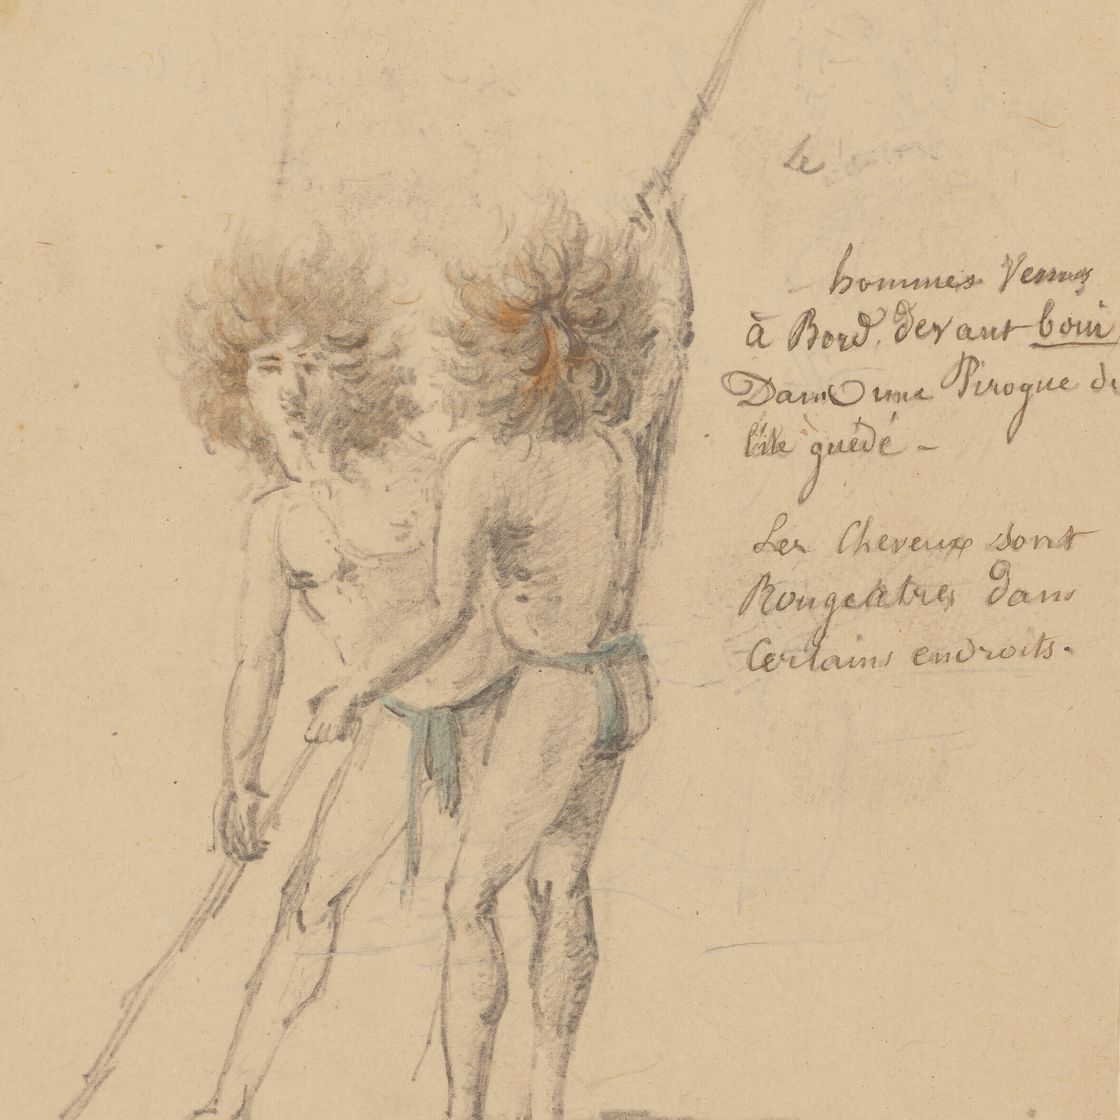 Le
hommes Venus
à Bord. devant boui
Dans une Pirogue de
l'ile guébé -
Les Cheveux sont
Rougeatres dans
Certains endroits.